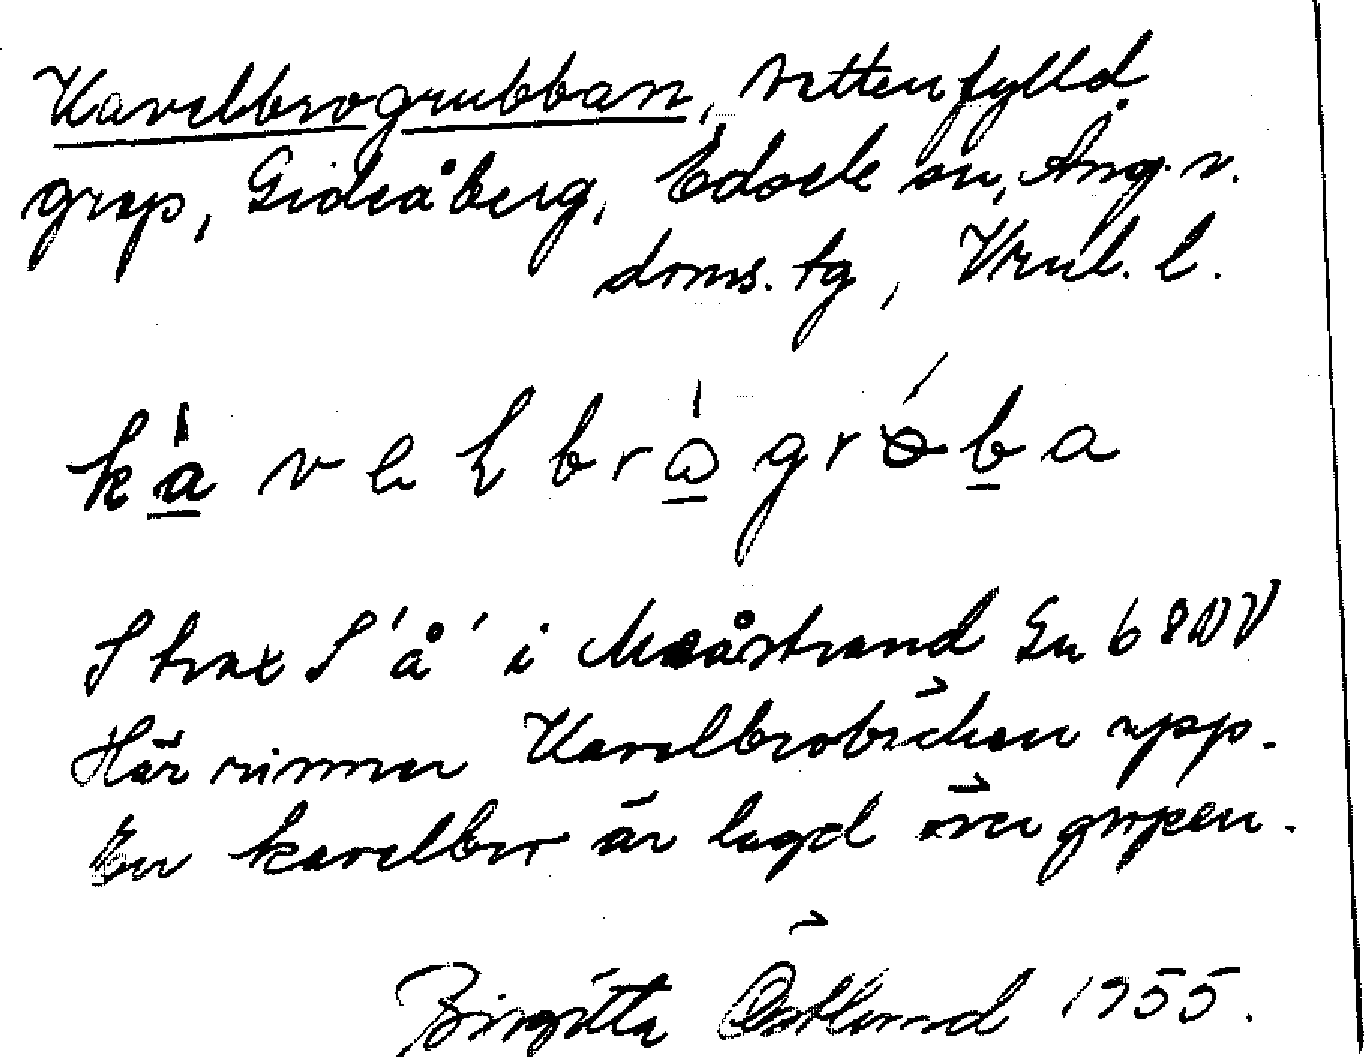 Kavelbrogrubban, vattenfylld
grop, Gideåberg, Edsele sn, Ång. v.
doms. tg, Vnl. l.
kável brágróba
Strax S 'å' i Maåstrand En 68 NV
Här rinner Kavelbrobäcken upp.
En kavelbro är lagd över gropen.
Birgitta Östlund 1955.